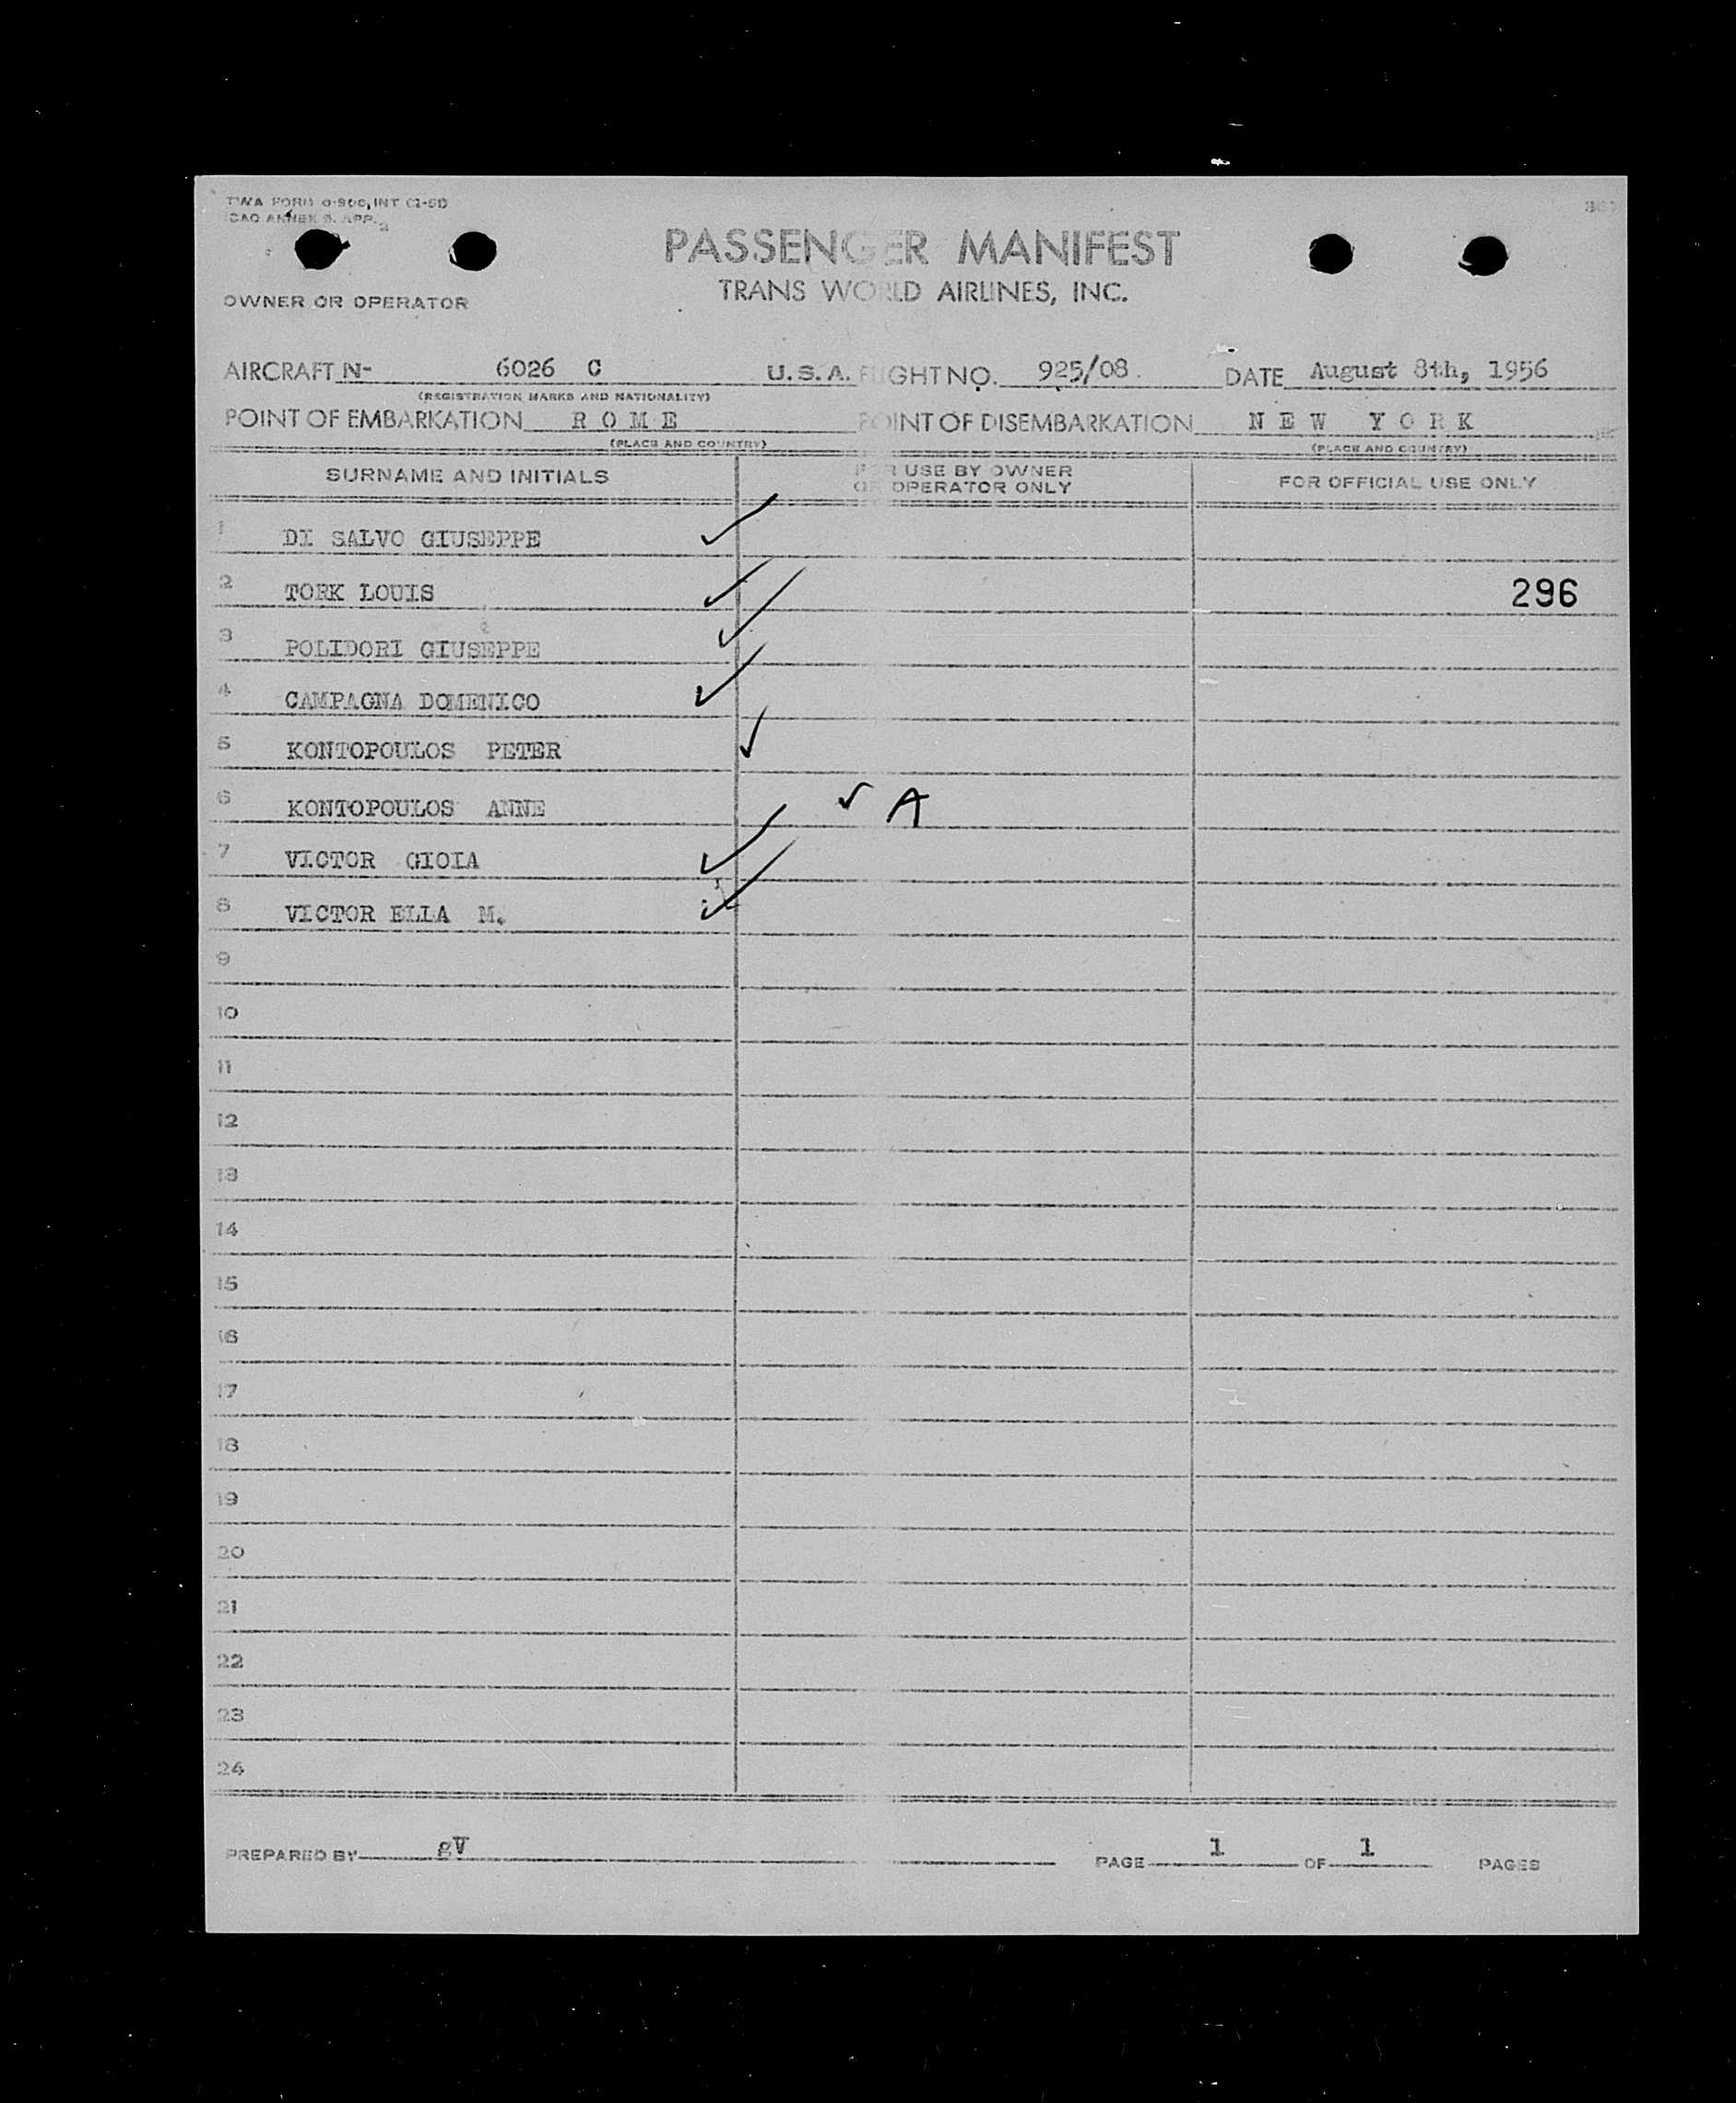 TWA FORM O-806, INT (1-51)
ICAO ANNEX 9, APP. 2
PASSENGER MANIFEST
TRANS WORLD AIRLINES, INC.
OWNER OR OPERATOR
AIRCRAFT N- 6026 C U.S.A. FLIGHT NO. 925/08. DATE August 8th, 1956
(REGISTRATION MARKS AND NATIONALITY)
POINT OF EMBARKATION R O M E POINT OF DISEMBARKATION N E W Y O R K
(PLACE AND COUNTRY) (PLACE AND COUNTRY)
SURNAME AND INITIALS FOR USE BY OWNER OR OPERATOR ONLY FOR OFFICIAL USE ONLY
1 DI SALVO GIUSEPPE ✓
2 TORK LOUIS ✓ 296
3 POLIDORI GIUSEPPE ✓
4 CAMPAGNA DOMENICO ✓
5 KONTOPOULOS PETER ✓
6 KONTOPOULOS ANNE ✓ A
7 VICTOR GIOIA ✓
8 VICTOR ELLA M. ✓
9
10
11
12
13
14
15
16
17
18
19
20
21
22
23
24
PREPARED BY gV PAGE 1 OF 1 PAGES